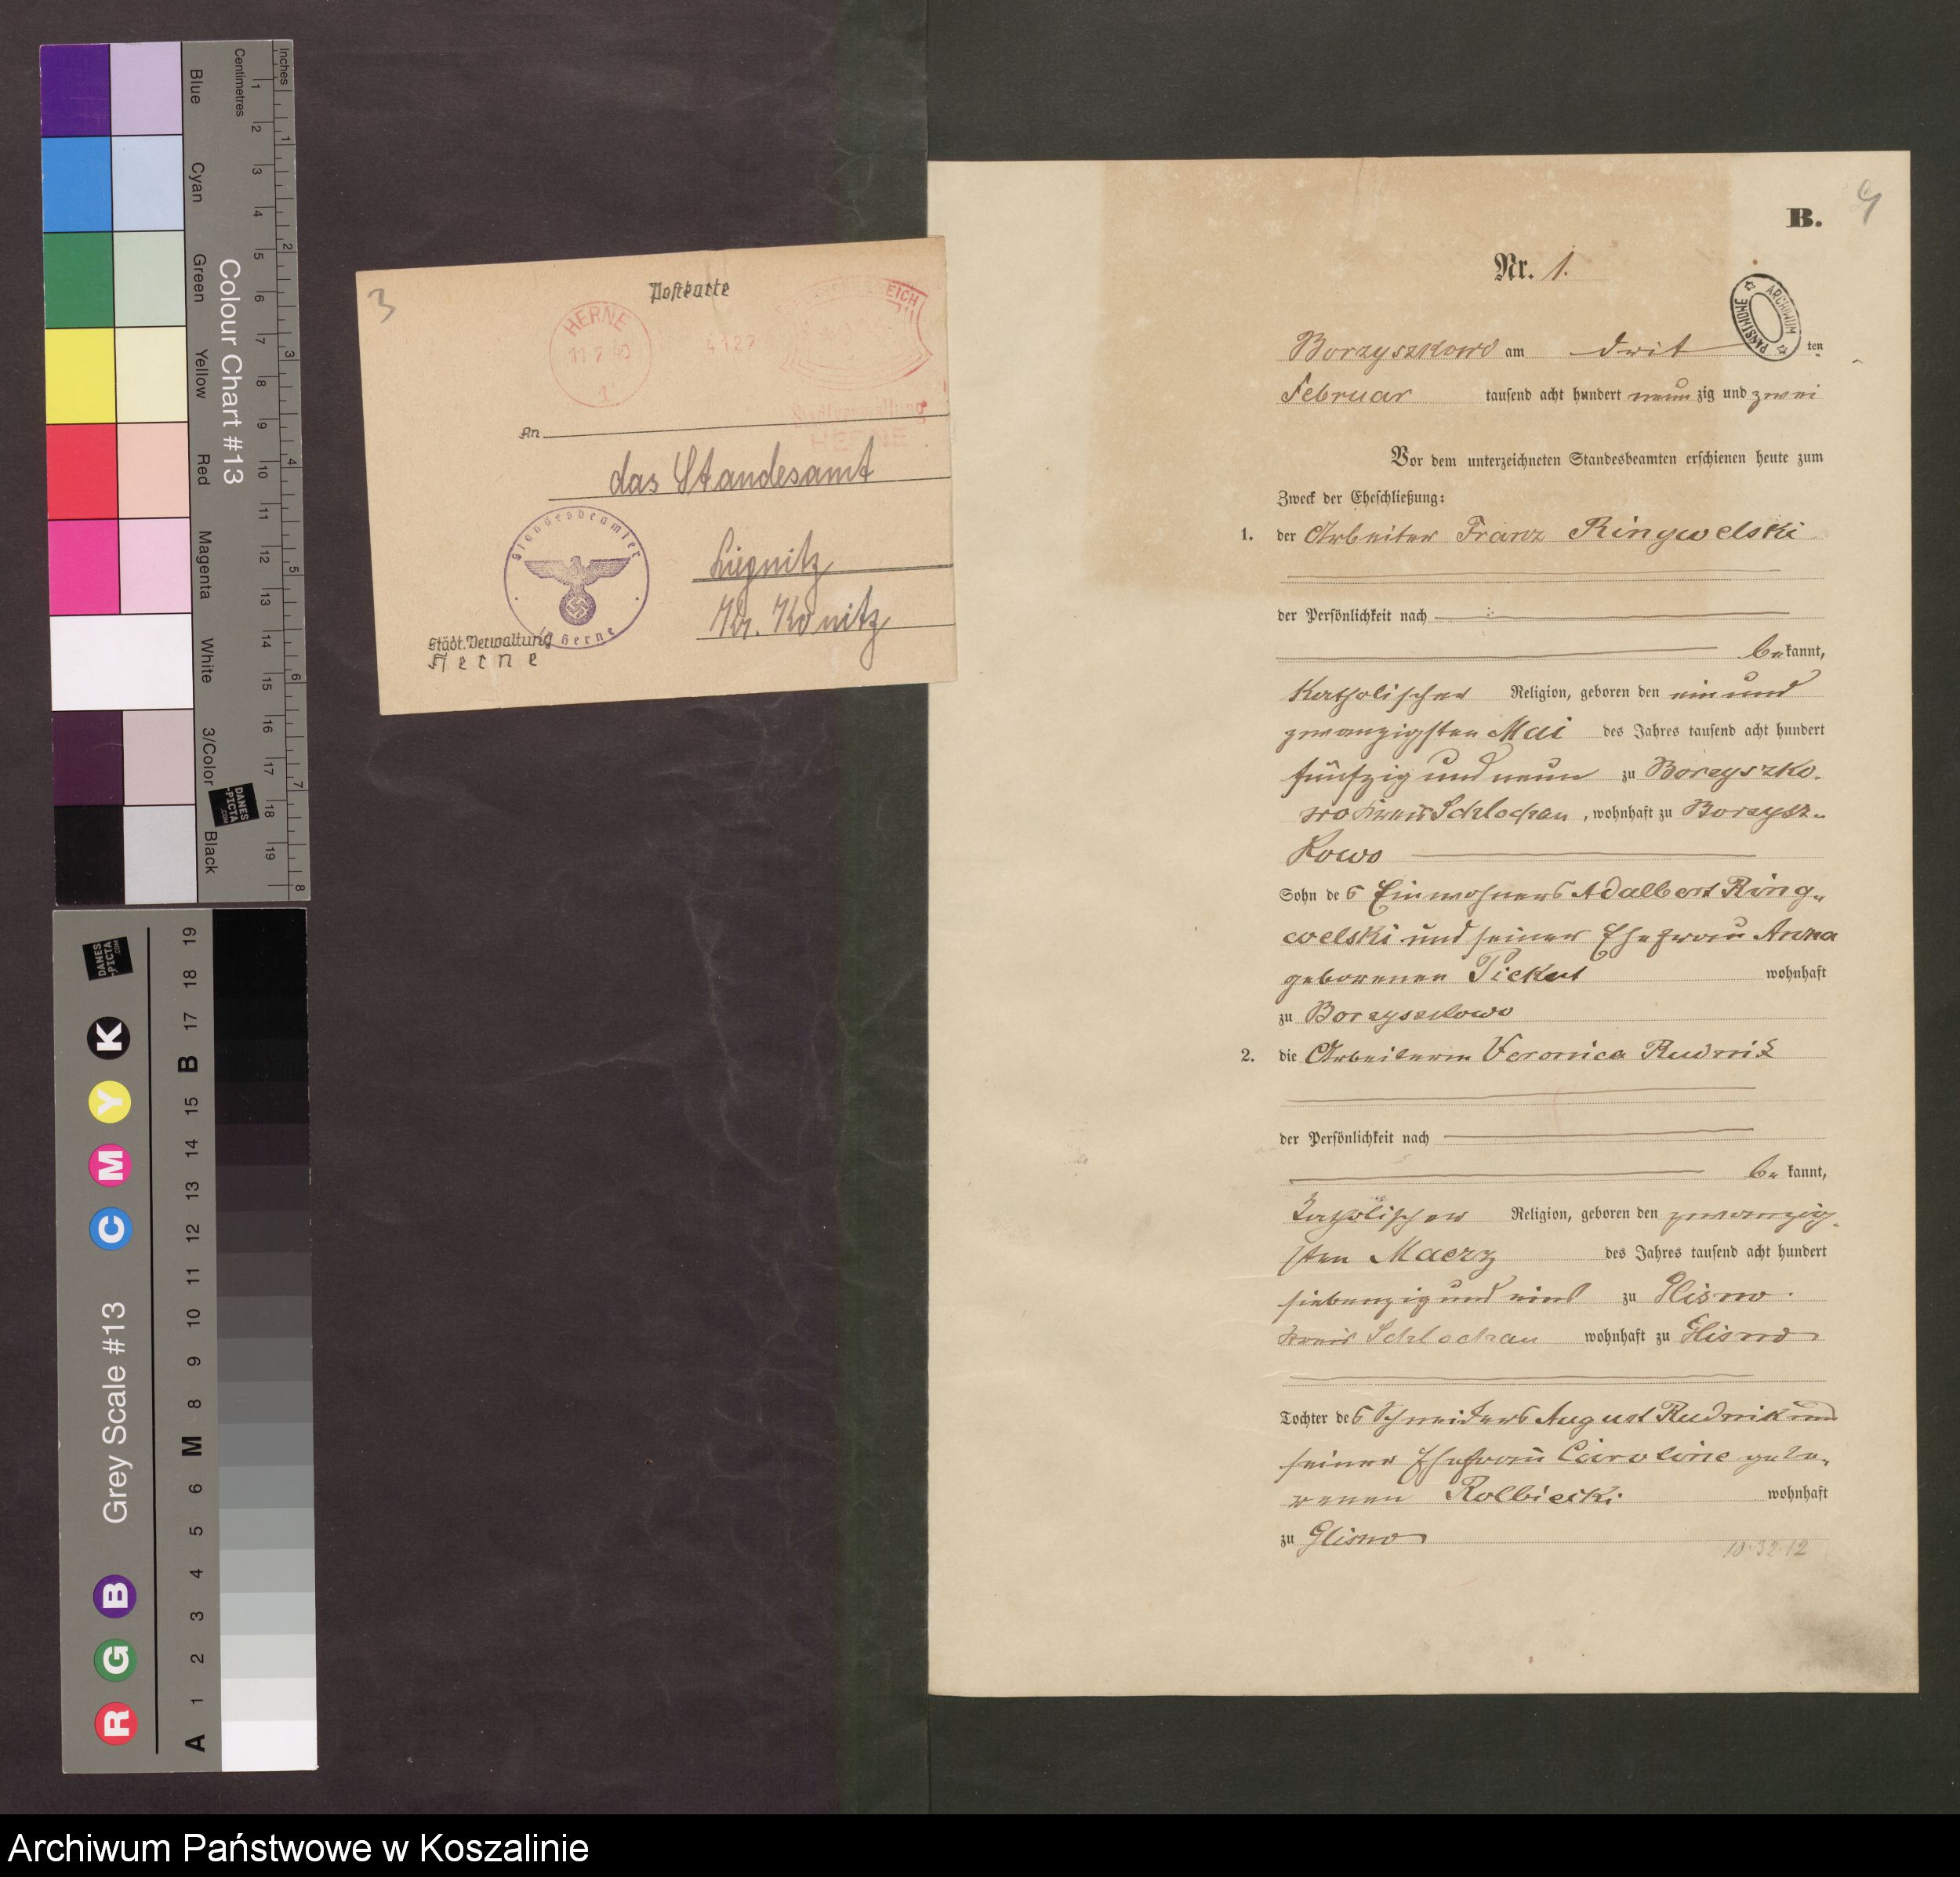 Inches
Centimetres
Colour Chart #13
Blue
Cyan
Green
Yellow
Red
Magenta
White
3/Color
Black
1 2 3 4 5 6 7 8 9 10 11 12 13 14 15 16 17 18 19
1 2 3 4 5 6 7 8
DANES
-PICTA
.COM
Grey Scale #13
R G B C M Y K
A 1 2 3 4 5 6 M 8 9 10 11 12 13 14 15 B 17 18 19
DANES
-PICTA
.COM
3
Postkarte
HERNE
11 2 40
REICH
Stadtverwaltung
HERNE
An
das Standesamt
Liegnitz
Kr. Konitz
Standesbeamter
Herne
Städt. Verwaltung
Herne
B.
Nr. 1.
ARCHIWUM PAŃSTWOWE
Borzyszkowo am drit ten
Februar tausend acht hundert neunzig und zwei
Vor dem unterzeichneten Standesbeamten erschienen heute zum
Zweck der Eheschließung:
1. der Arbeiter Franz Ringwelski
der Persönlichkeit nach
bekannt,
katholischer Religion, geboren den ein und
zwanzigsten Mai des Jahres tausend acht hundert
fünfzig und neun zu Borzyszko-
wo Kreis Schlochau, wohnhaft zu Borzysz-
kowo
Sohn des Einwohners Adalbert Ring-
welski und seiner Ehefrau Anna
geborenen Pickut wohnhaft
zu Borzyszkowo
2. die Arbeiterin Veronica Rudnik
der Persönlichkeit nach
bekannt,
katholischer Religion, geboren den zwanzig-
sten Maerz des Jahres tausend acht hundert
siebenzig und eins zu Glisno
Kreis Schlochau wohnhaft zu Glisno
Tochter des Schneiders August Rudnik und
seiner Ehefrau Caroline gebo-
renen Kolbiecki wohnhaft
zu Glisno
Archiwum Państwowe w Koszalinie